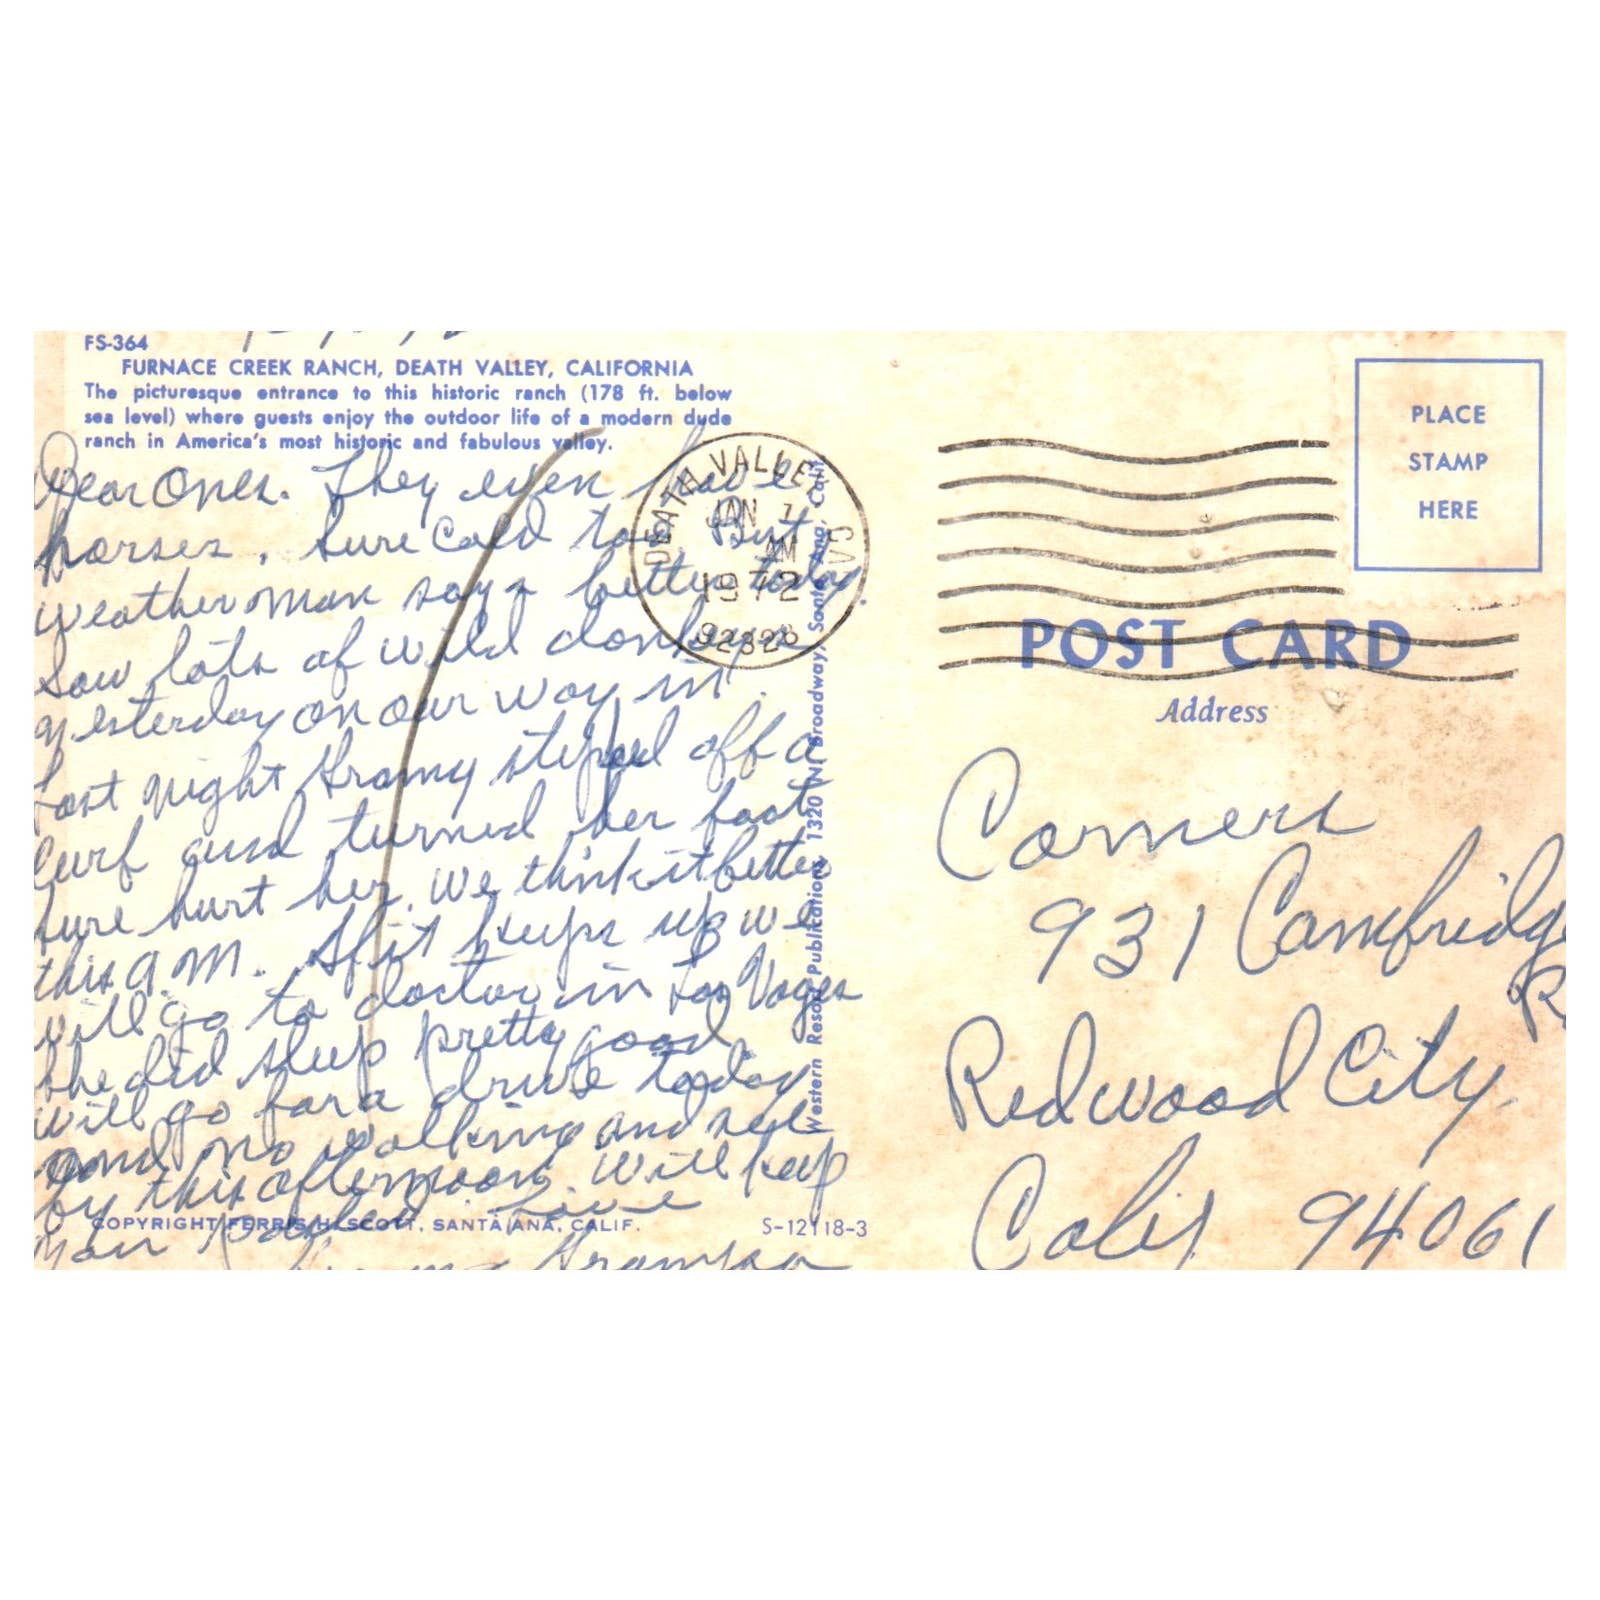 FS-364
FURNACE CREEK RANCH, DEATH VALLEY, CALIFORNIA
The picturesque entrance to this historic ranch (178 ft. below
sea level) where guests enjoy the outdoor life of a modern dude
ranch in America's most historic and fabulous valley.
Dear Ones. They even have
horses. Sure Cold too. But
weather man says better today.
Saw lots of wild donkeys
yesterday on our way in.
Last night Gramy steped off a
curf and turned her foot
sure hurt her. We think it better
this A.M. If it keeps up we
will go to doctor in Las Vages
She did sleep pretty good.
will go for a drive today
and no walking and see
by this afternoon. Will keep
you posted. Love
Grampa
COPYRIGHT FERRIS H. SCOTT, SANTA ANA, CALIF.
S-12118-3
Western Resort Publications, 1320 N. Broadway, Santa Ana, Calif.
DEATH VALLEY CA
JAN 7
AM
1972
92328
PLACE
STAMP
HERE
POST CARD
Address
Corners
931 Cambridge
R
Redwood City
Calif 94061